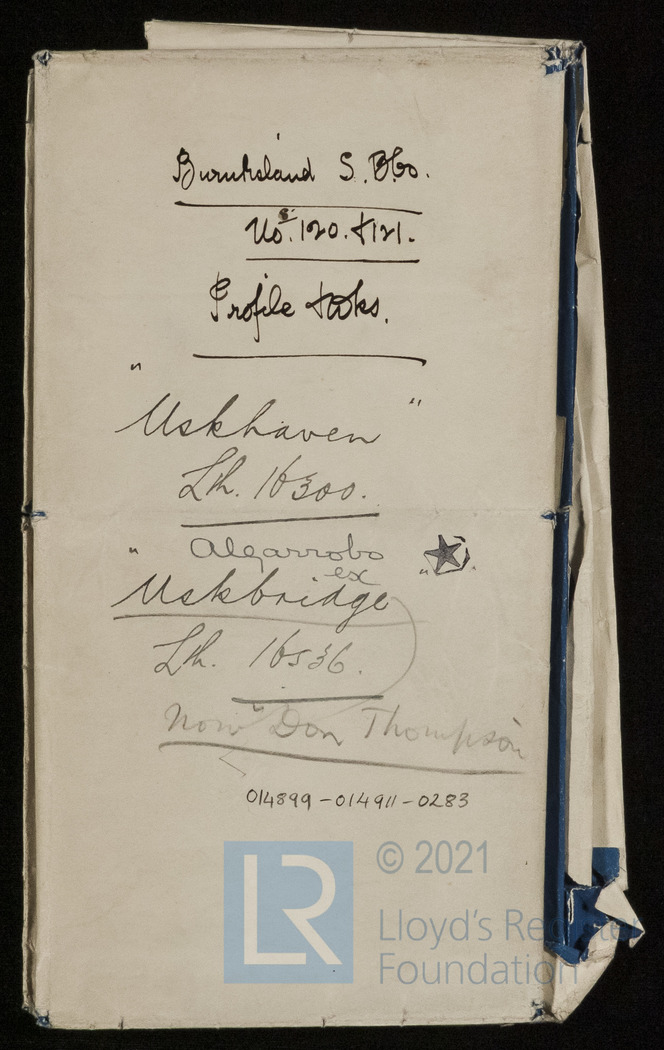 Burntisland S. B. Co.
Nos. 120. & 121.
Profile & Dks.
"Uskhaven"
Lh. 16300.
Algarrobo
ex
"Uskbridge"
Lh. 16536.
Now "Don Thompson
014899-014911-0283
LR
© 2021
Lloyd's Register
Foundation